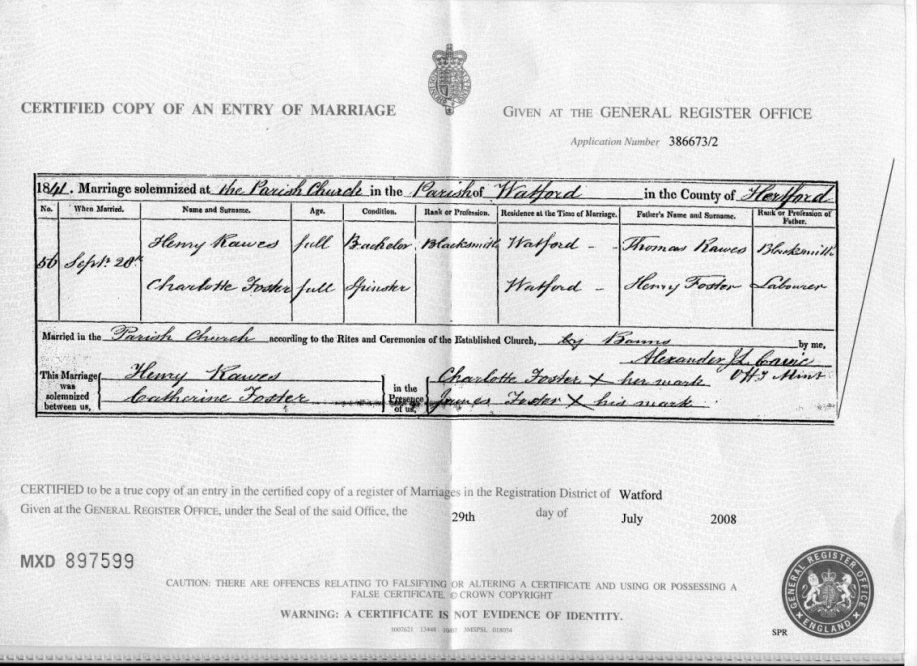 CERTIFIED COPY OF AN ENTRY OF MARRIAGE
GIVEN AT THE GENERAL REGISTER OFFICE
Application Number 386673/2
1841. Marriage solemnized at the Parish Church in the Parish of Watford in the County of Hertford
No. When Married. Name and Surname. Age. Condition. Rank or Profession. Residence at the Time of Marriage. Father's Name and Surname. Rank or Profession of Father.
56 Sept. 28th
Henry Rawes full Bachelor Blacksmith Watford Thomas Rawes Blacksmith
Charlotte Foster full Spinster Watford Henry Foster Labourer
Married in the Parish Church according to the Rites and Ceremonies of the Established Church, by Banns by me,
Alexander
Off Minr
This Marriage was solemnized between us,
Henry Rawes
Catherine Foster
in the Presence of us,
Charlotte Foster X her mark
James Foster X his mark
CERTIFIED to be a true copy of an entry in the certified copy of a register of Marriages in the Registration District of Watford
Given at the GENERAL REGISTER OFFICE, under the Seal of the said Office, the 29th day of July 2008
MXD 897599
CAUTION: THERE ARE OFFENCES RELATING TO FALSIFYING OR ALTERING A CERTIFICATE AND USING OR POSSESSING A
FALSE CERTIFICATE. © CROWN COPYRIGHT
WARNING: A CERTIFICATE IS NOT EVIDENCE OF IDENTITY.
SPR
GENERAL REGISTER OFFICE
ENGLAND